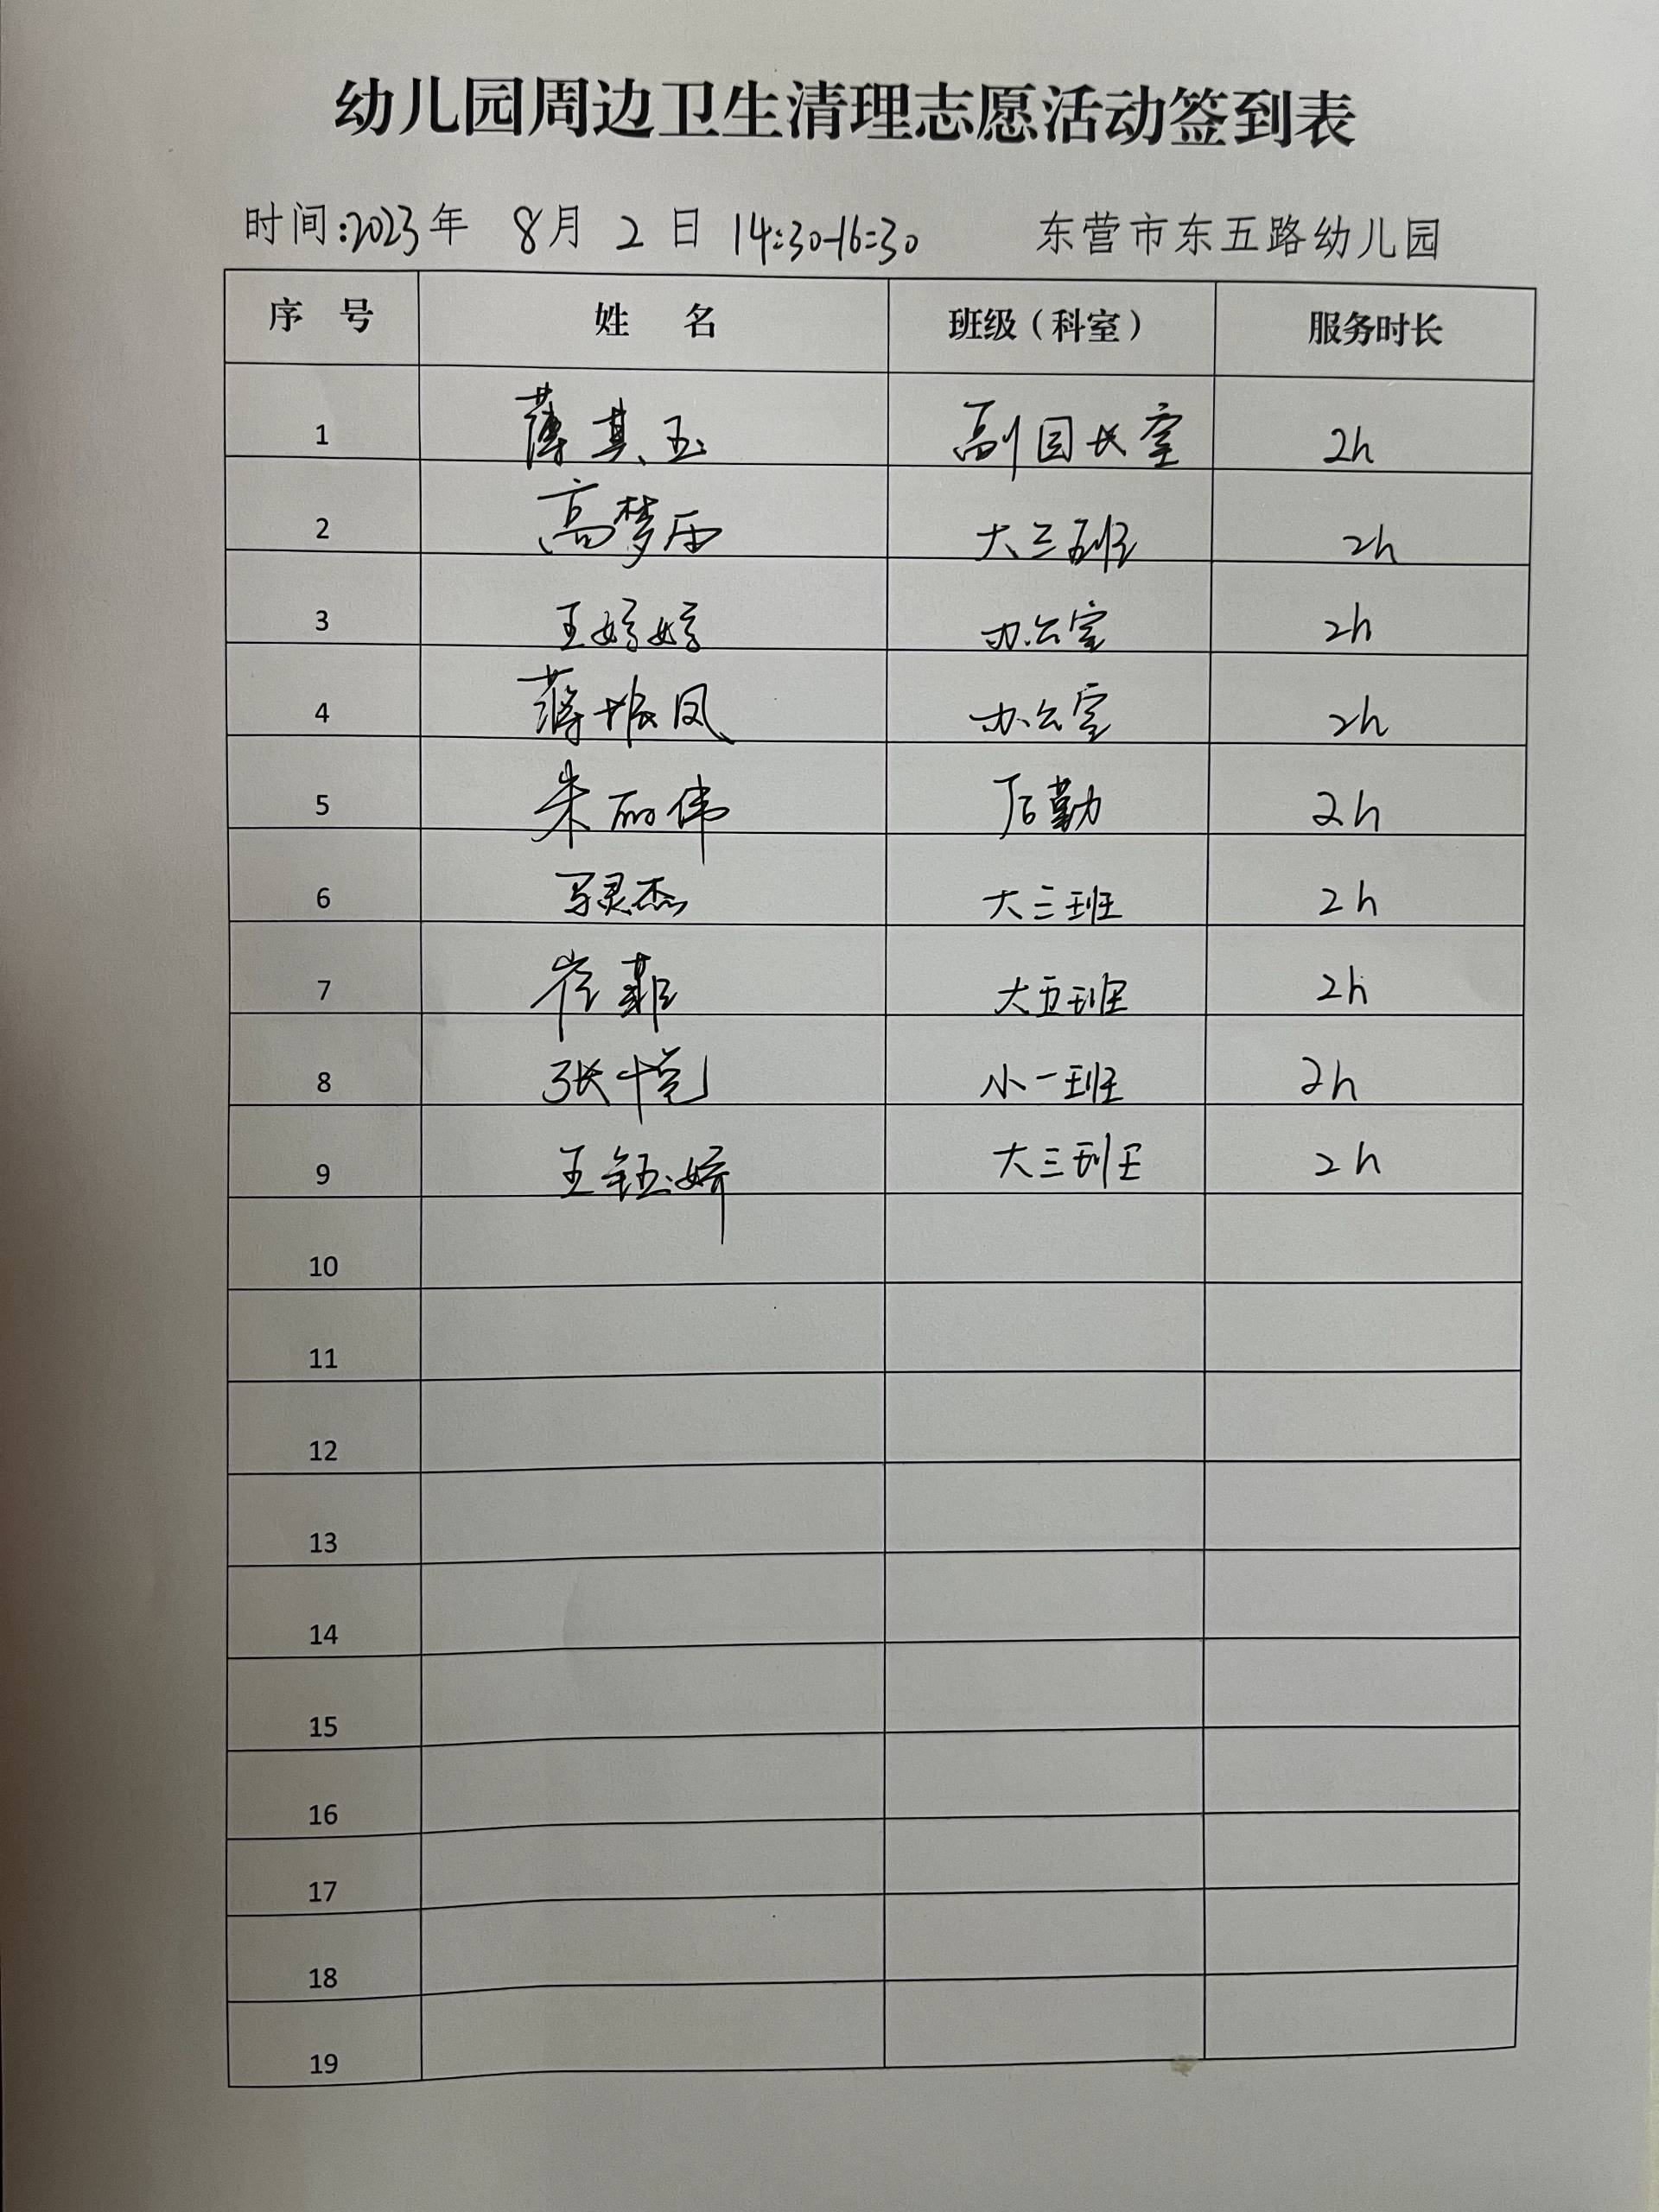 幼儿园周边卫生清理志愿活动签到表
时间:2023年 8月 2 日 14:30-16:30 东营市东五路幼儿园
序 号 姓 名 班级（科室） 服务时长
1 薄其玉 副园长室 2h
2 高梦 大三班 2h
3 王婷婷 办公室 2h
4 蒋振凤 办公室 2h
5 朱丽伟 后勤 2h
6 马灵杰 大三班 2h
7 崔菲 大五班 2h
8 张悦 小一班 2h
9 王钰娇 大三班 2h
10
11
12
13
14
15
16
17
18
19